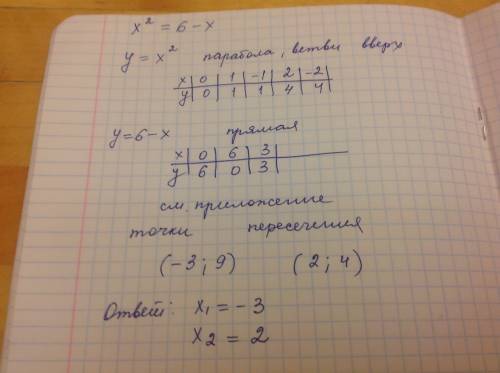 x² = 6 - x
y = x² парабола, ветви вверх
x | 0 | 1 | -1 | 2 | -2
y | 0 | 1 | 1 | 4 | 4
y = 6 - x прямая
x | 0 | 6 | 3 |
y | 6 | 0 | 3 |
см. приложение
точки пересечения
(-3; 9) (2; 4)
Ответ: x₁ = -3
x₂ = 2